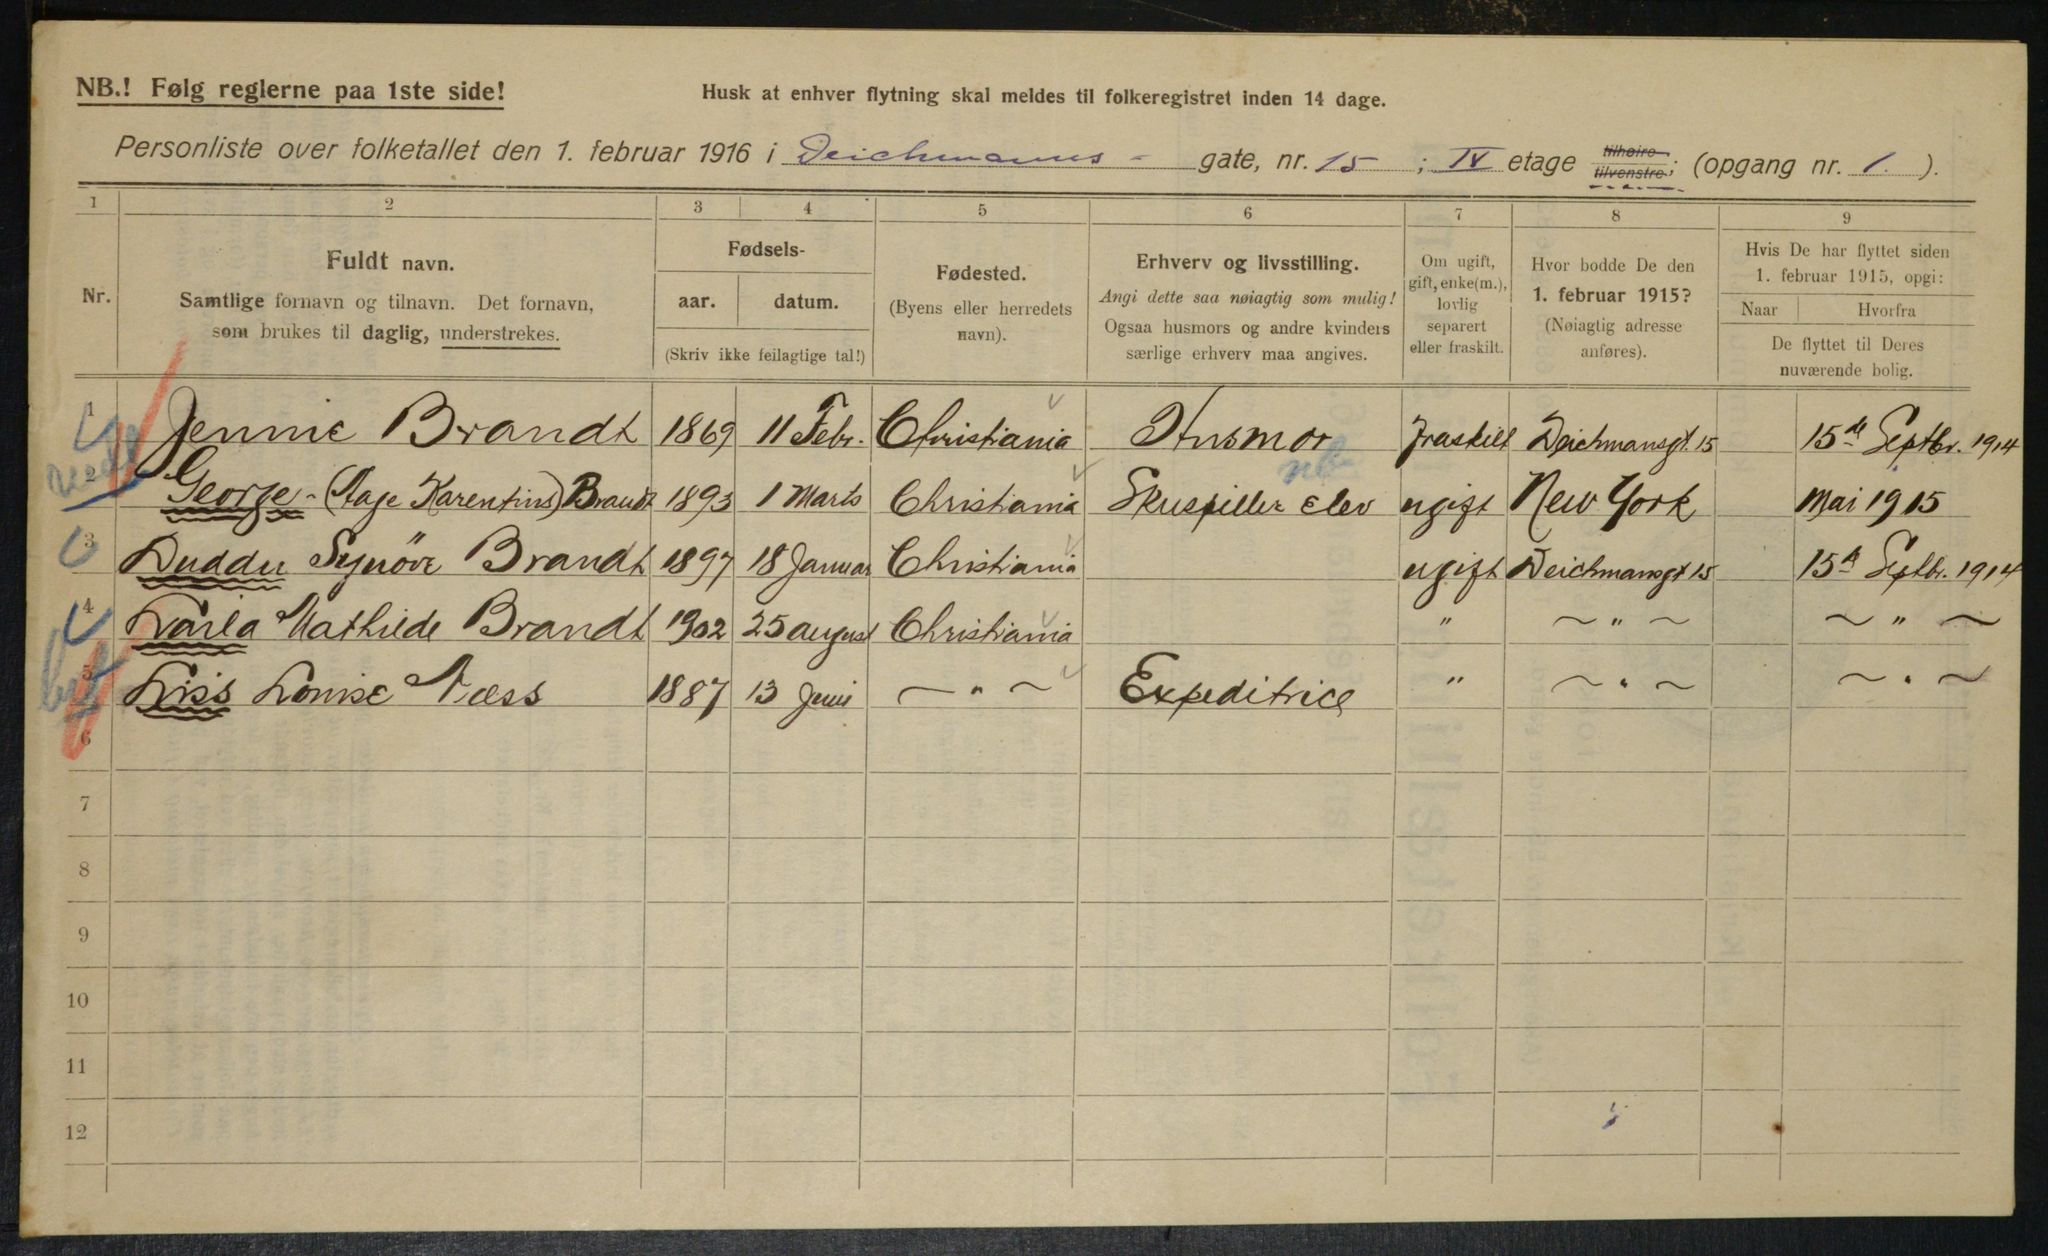 NB.! Følg reglerne paa 1ste side!
Husk at enhver flytning skal meldes til folkeregistret inden 14 dage.
Personliste over folketallet den 1. februar 1916 i Deichmanns - gate, nr. 15 ; IV etage tilhøire tilvenstre; (opgang nr. 1. ).
1 2 3 4 5 6 7 8 9
Nr.
Fuldt navn.
Samtlige fornavn og tilnavn. Det fornavn,
som brukes til daglig, understrekes.
Fødsels-
aar. datum.
(Skriv ikke feilagtige tal!)
Fødested.
(Byens eller herredets
navn).
Erhverv og livsstilling.
Angi dette saa nøiagtig som mulig!
Ogsaa husmors og andre kvinders
særlige erhverv maa angives.
Om ugift,
gift, enke(m.),
lovlig
separert
eller fraskilt.
Hvor bodde De den
1. februar 1915?
(Nøiagtig adresse
anføres).
Hvis De har flyttet siden
1. februar 1915, opgi:
Naar Hvorfra
De flyttet til Deres
nuværende bolig.
1 Jennie Brandt 1869 11 Febr. Christiania Husmor fraskilt Deichmansgt. 15 15de Septbr. 1914
2 George - (Aage Karentius) Brandt 1893 1 Marts Christiania Skuspiller Elev ugift New York Mai 1915
3 Duddu Synöve Brandt 1897 18 Januar Christiania ugift Deichmansgt 15 15de Septbr. 1914
4 Karla Mathilde Brandt 1902 25 august Christiania " ~ " ~ ~ " ~
5 Liss Louise Næss 1887 13 Juni ~ " ~ Expeditrice " ~ " ~ ~ " ~
6
7
8
9
10
11
12